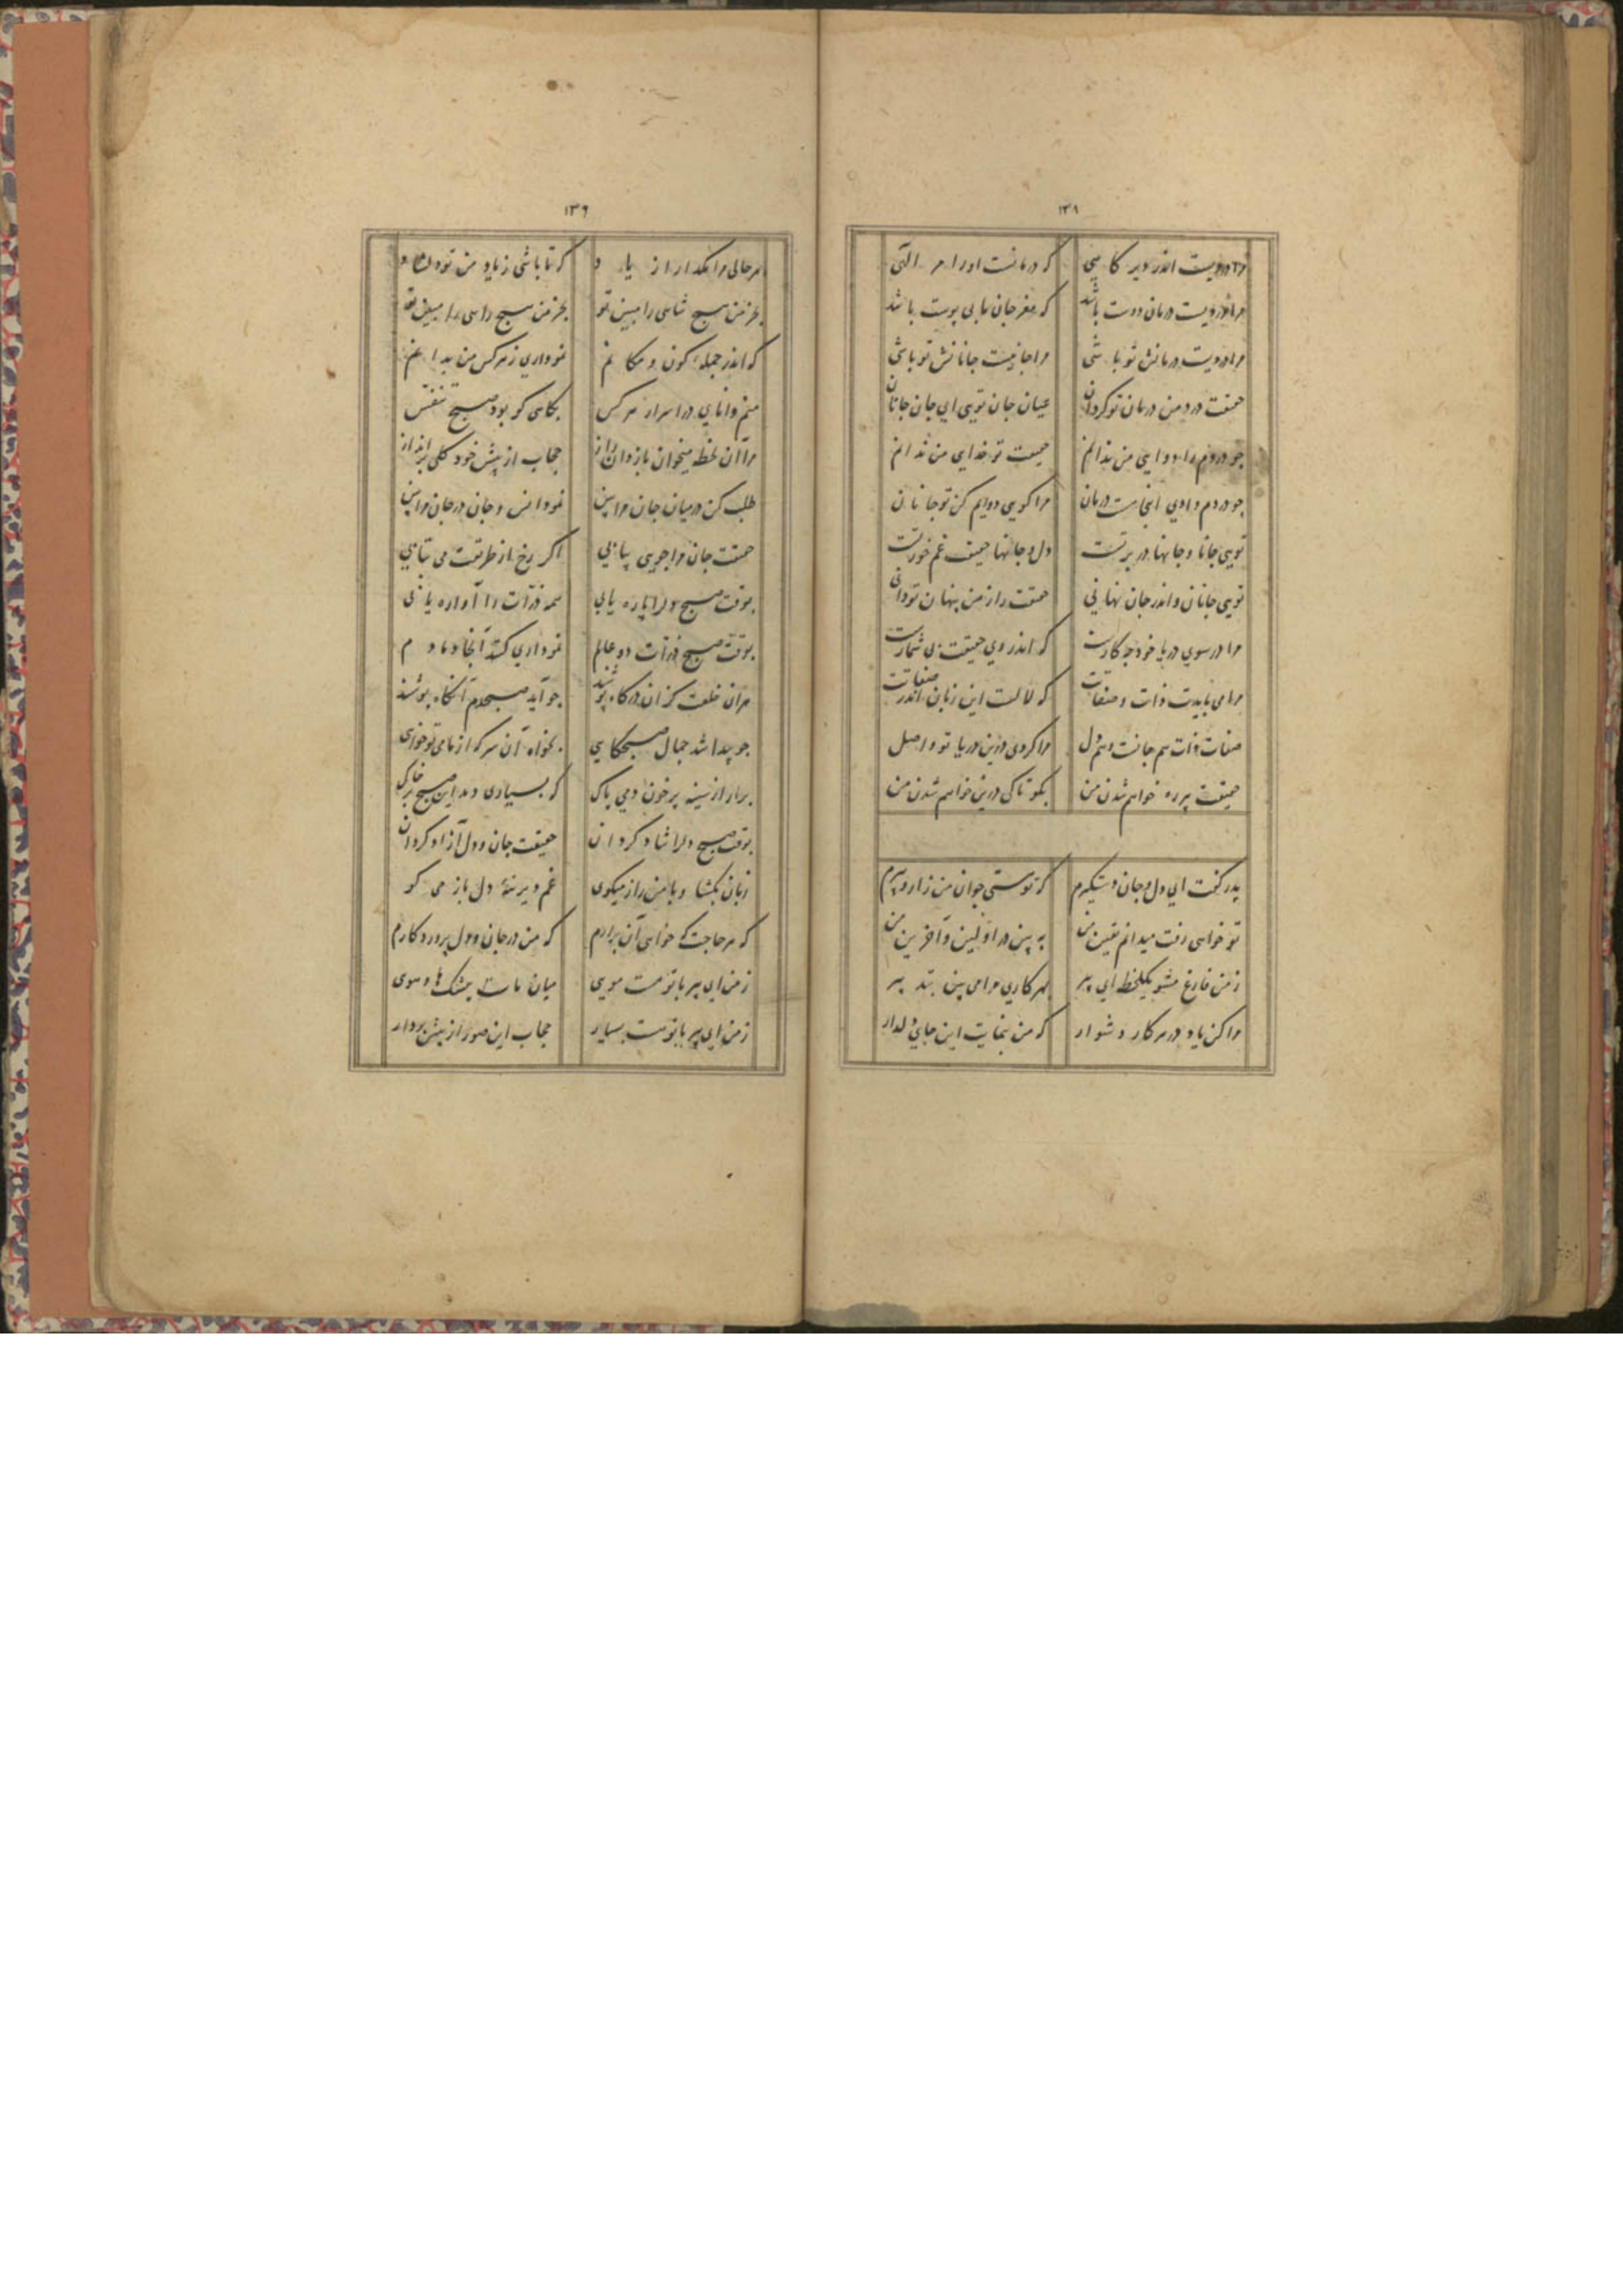 ۱۳۸
مرا دردیست اندر دیر کاهی که درمانست او را مر الهی
مرا دردیست درمان دوست باشد که مغز جان ما بی پوست باشد
مرا دردیست درمانش تو باشی مرا جانیست جانانش تو باشی
حقیقت درد من درمان تو کردان عیان جان تویی ای جان جانان
چو دردم را دوایی من ندانم حقیقت تو خدایی من ندانم
چو دردم دادی اینجا هست درمان مرا کویی دوایم کن تو جانان
تویی جانا و جانها در برتست دل و جانها حقیقت غم خورتست
تویی جانان و اندر جان نهانی حقیقت راز من پنهان تو دانی
مرا در سوی دریا خود چه کارست که اندر وی حقیقت بی شمارست
مرا می باید ذات و صفاتت که لالست این زبان اندر صفاتت
صفات ذات هم جانست و هم دل مرا کردی درین دریا تو واصل
حقیقت پرده خواهم شدن من بکو تا کی درین خواهم شدن من
پدر کفت ای دل و جان دستکیرم که تو هستی جوان من زار و پیرم
تو خواهی رفت میدانم یقین من به بین در اولین و آخرین من
ز من فارغ مشو یکلحظه ای پیر بهر کاری مرا می بین به تدبیر
مرا کن یاد در هر کار دشوار که من بنمایمت این جای دلدار
۱۳۹
بهر حالی مرا مکذار از یاد که تا باشی ز یاد من تو دل شاد
بجز من هیچ شاهی را مبین تو بجز من هیچ راهی را مبین تو
که اندر جمله کون و مکانم نموداری ز هر کس من بدانم
منم دانای در اسرار هر کس بکاهی کو بود صبح تنفس
مرا آن لحظه میخوان بازدان راز حجاب از پیش خود کلی برانداز
طلب کن در میان جان مرا بین نمود انس و جان در جان مرا بین
حقیقت جان مرا جویی بیابی اکر رخ از طریقت می نتابی
بوقت صبح دل را پاره یابی همه ذرات را آواره یابی
بوقت صبح ذرات دو عالم نموداری کند آنجا دمادم
مر آن خلعت کز آن درکاه پوشند چو آید صبحدم آنکاه پوشند
چو پیدا شد جمال صبحکاهی بخواه آن سر که از ما می تو خواهی
برآر از سینه پر خون دمی پاک که بسیاری دمد این صبح بر خاک
بوقت صبح دل را شاد کردان حقیقت جان و دل آزاد کردان
زبان بکشا و با من راز میکوی غم دیرینه دل باز می کو
که هر حاجت که خواهی آن برآرم که من در جان و دل پروردکارم
ز من ای پیر با تو هست مویی میان مات بیشک های و هویی
ز من ای پیر با تو هست بسیار حجاب این صور از پیش بردار